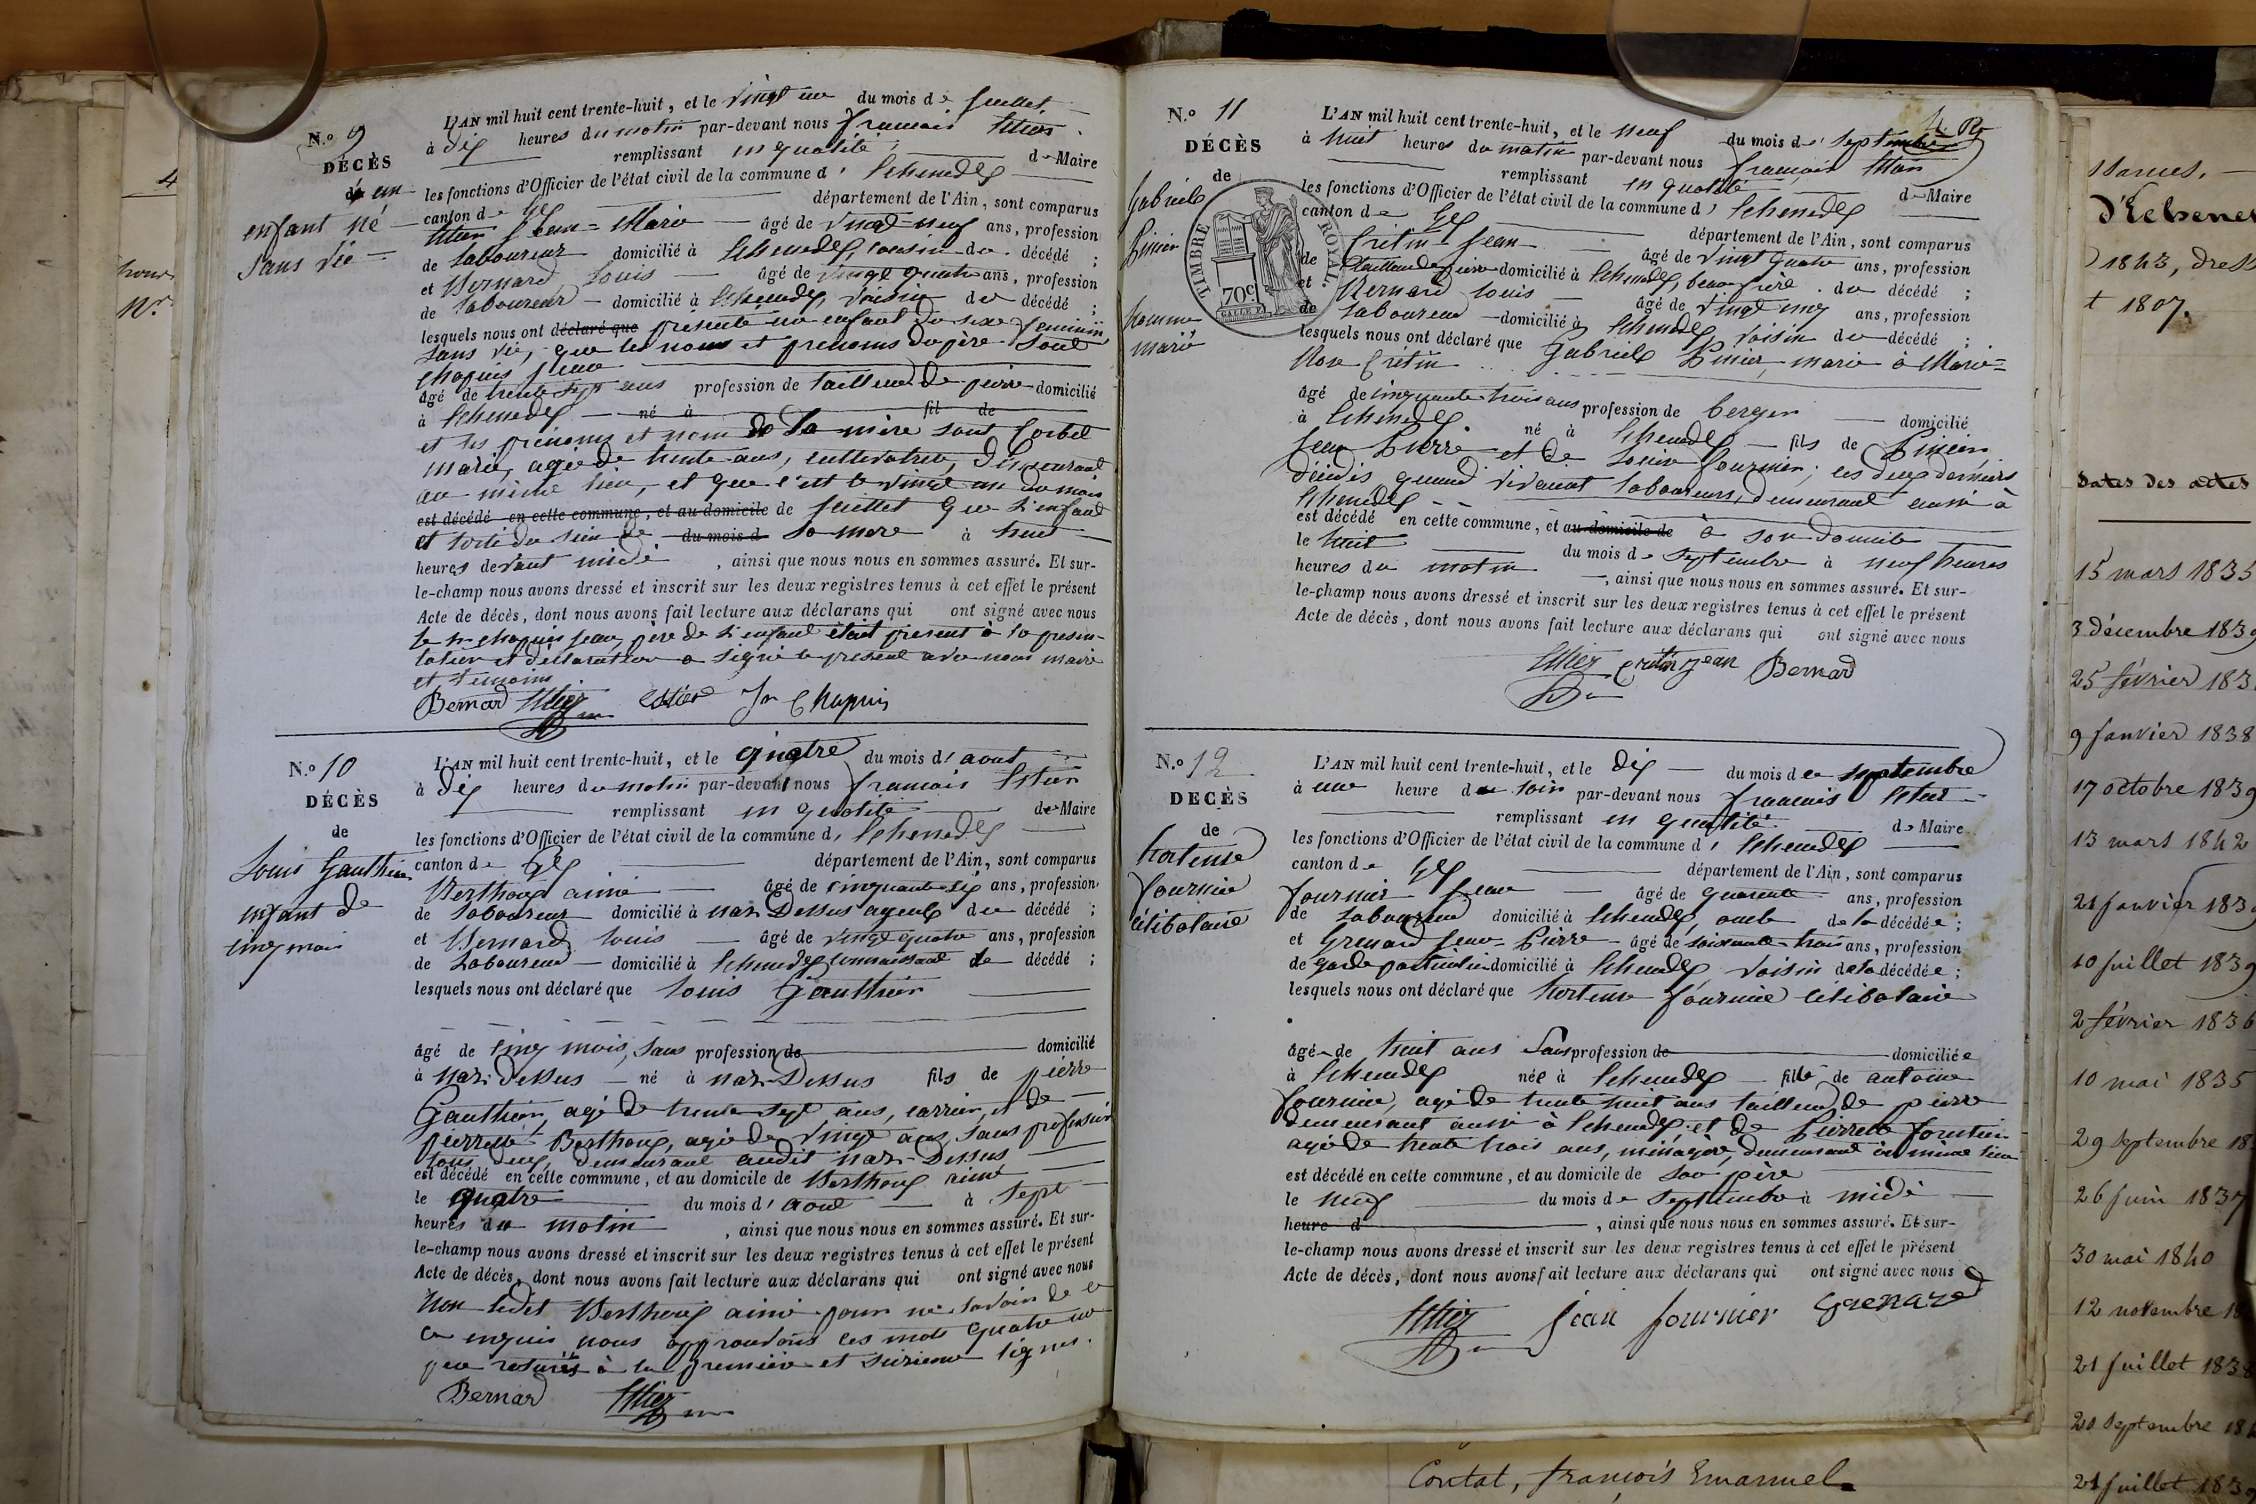 N.o 9
DÉCÈS
d'un
enfant né
sans vie
L'AN mil huit cent trente-huit, et le vingt un du mois de juillet
à dix heures du matin par-devant nous françois
remplissant en qualité de Maire
les fonctions d'Officier de l'état civil de la commune d'Echenedex
canton de Gex département de l'Ain, sont comparus
Jean-Marie âgé de vingt-neuf ans, profession
de laboureur domicilié à Echenedex, cousin du décédé ;
et Bernard Louis âgé de vingt quatre ans, profession
de laboureur domicilié à Echenedex, voisin du décédé ;
lesquels nous ont déclaré que présenté un enfant du sexe feminin
sans vie, que les noms et prenoms du père sont
Chapuis Jean
âgé de trente sept ans profession de tailleur de pierre domicilié
à Echenedex né à fil de
et les prénoms et nom de la mère sont Corbet
Marie, agée de trente ans, cultivatrice, demeurant
au même lieu, et que c'est le vingt un du mois
est décédé en cette commune, et au domicile de juillet que l'enfant
est sorti du sein de du mois d sa mère à huit
heures devant midi, ainsi que nous nous en sommes assuré. Et sur-
le-champ nous avons dressé et inscrit sur les deux registres tenus à cet effet le présent
Acte de décès, dont nous avons fait lecture aux déclarans qui ont signé avec nous
le sr Chapuis Jean, père de l'enfant était present à la présen-
tation et déclaration a signé le présent avec nous maire
et témoins
Bernard Jn Chapuis
N.o 10
DÉCÈS
de
Louis Gauthier
enfant de
cinq mois
L'AN mil huit cent trente-huit, et le quatre du mois d'aout
à dix heures du matin par-devant nous françois
remplissant en qualité de Maire
les fonctions d'Officier de l'état civil de la commune d'Echenedex
canton de Gex département de l'Ain, sont comparus
Berthoux aimé âgé de cinquante six ans, profession
de laboureur domicilié à Naz-Dessus ayeul du décédé ;
et Bernard Louis âgé de vingt quatre ans, profession
de laboureur domicilié à Echenedex connaissant le décédé ;
lesquels nous ont déclaré que Louis Gauthier
âgé de cinq mois, sans profession de domicilié
à Naz-Dessus né à Naz-Dessus fils de pierre
Gauthier, agé de trente sept ans, carrier, et de
pierrette Berthoux, agée de vingt ans, sans profession
tous deux demeurant audit Naz-Dessus
est décédé en cette commune, et au domicile de Berthoux aimé
le quatre du mois d'aout à sept
heures du matin, ainsi que nous nous en sommes assuré. Et sur-
le-champ nous avons dressé et inscrit sur les deux registres tenus à cet effet le présent
Acte de décès, dont nous avons fait lecture aux déclarans qui ont signé avec nous
Non ledit Berthoux aimé pour ne savoir de ce
ce enquis nous approuvons les mots quatre un
que raturés à la première et sixième lignes.
Bernard
N.o 11
DÉCÈS
de
Gabriel
homme
marié
TIMBRE ROYAL
70c
L'AN mil huit cent trente-huit, et le neuf du mois de septembre
à huit heures du matin par-devant nous françois
remplissant en qualité de Maire
les fonctions d'Officier de l'état civil de la commune d'Echenedex
canton de Gex département de l'Ain, sont comparus
Crétin Jean âgé de vingt quatre ans, profession
de tailleur de pierre domicilié à Echenedex, beau frère du décédé ;
et Bernard Louis âgé de vingt cinq ans, profession
de laboureur domicilié à Echenedex voisin du décédé ;
lesquels nous ont déclaré que Gabriel marié à Marie-
Crétin
âgé de cinquante trois ans profession de berger domicilié
à Echenedex né à Echenedex fils de
Jean Pierre et de Fournier, ces deux derniers
décédés quand vivaient laboureurs, demeurant aussi à
Echenedex
est décédé en cette commune, et au domicile de à son domicile
le huit du mois de septembre à neuf heures
heures du matin, ainsi que nous nous en sommes assuré. Et sur-
le-champ nous avons dressé et inscrit sur les deux registres tenus à cet effet le présent
Acte de décès, dont nous avons fait lecture aux déclarans qui ont signé avec nous
cretin jean Bernard
N.o 12
DÉCÈS
de
hortense
fournier
célibataire
L'AN mil huit cent trente-huit, et le dix du mois de septembre
à une heure du soir par-devant nous françois
remplissant en qualité de Maire
les fonctions d'Officier de l'état civil de la commune d'Echenedex
canton de Gex département de l'Ain, sont comparus
fournier Jean âgé de quarante ans, profession
de laboureur domicilié à Echenedex, oncle de la décédée ;
et Grenard Jean-Pierre âgé de soixante-trois ans, profession
de garde particulier domicilié à Echenedex voisin de la décédée ;
lesquels nous ont déclaré que hortense fournier célibataire
âgée de huit ans sans profession de domiciliée
à Echenedex née à Echenedex fille de antoine
fournier, agé de trente huit ans tailleur de pierre
demeurant aussi à Echenedex et de Pierrette
agée de trente trois ans, ménagère, demeurant au même lieu
est décédé en cette commune, et au domicile de son père
le neuf du mois de septembre à midi
heure d, ainsi que nous nous en sommes assuré. Et sur-
le-champ nous avons dressé et inscrit sur les deux registres tenus à cet effet le présent
Acte de décès, dont nous avons fait lecture aux déclarans qui ont signé avec nous
jean fournier Grenard
1843, dress
t 1807.
Dates des actes
15 mars 1835
3 décembre 1839
25 février 183
9 janvier 1838
17 octobre 1839
13 mars 1842
21 janvier 1839
10 juillet 1839
2 février 1836
10 mai 1835
29 septembre 18
26 juin 1837
30 mai 1840
12 novembre 18
21 juillet 1838
20 septembre 18
21 juillet 1839
Contat, françois Emanuel